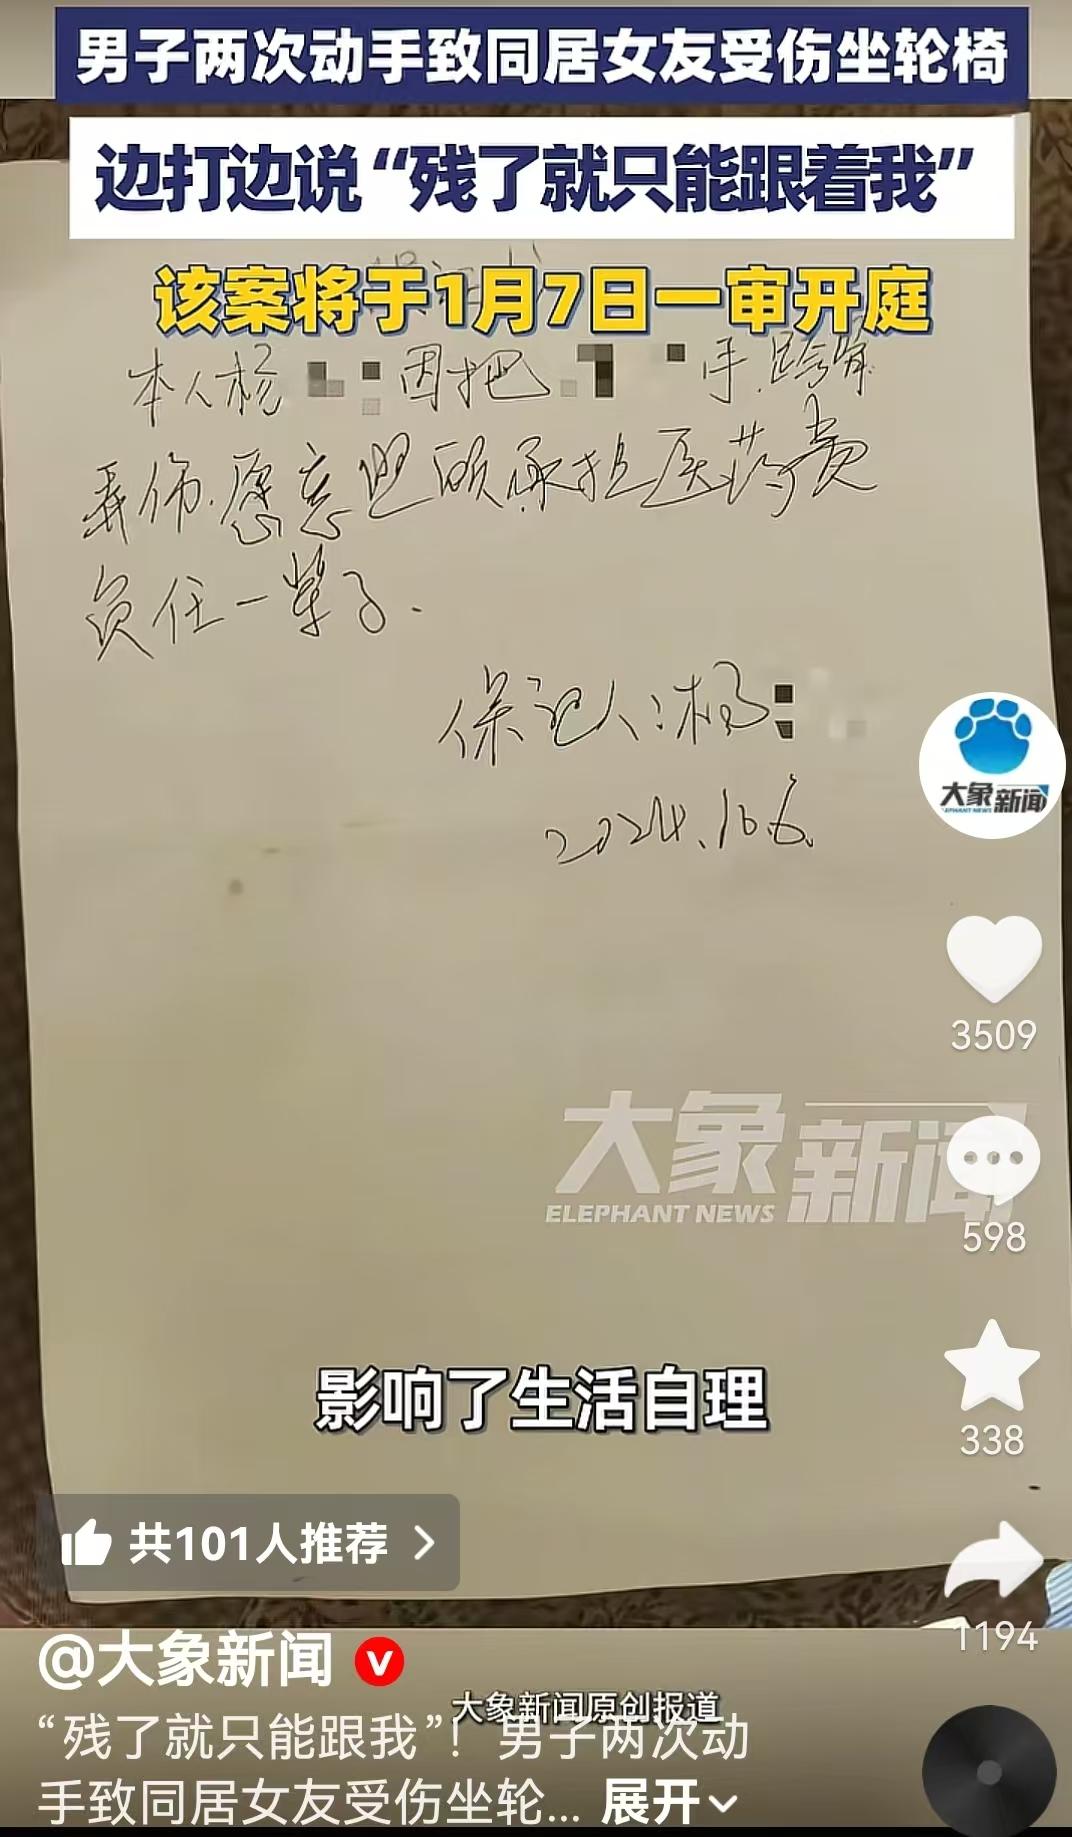 男子两次动手致同居女友受伤坐轮椅
边打边说“残了就只能跟着我”
该案将于1月7日一审开庭
本人杨 因把 手.跨骨
弄伤.愿意照顾承担医药费
负任一辈子.
保证人:杨
2024.10.6.
大象新闻
ELEPHANT NEWS
3509
大象新闻
ELEPHANT NEWS
598
338
影响了生活自理
共101人推荐 >
1194
@大象新闻
大象新闻原创报道
“残了就只能跟我”！男子两次动
手致同居女友受伤坐轮... 展开